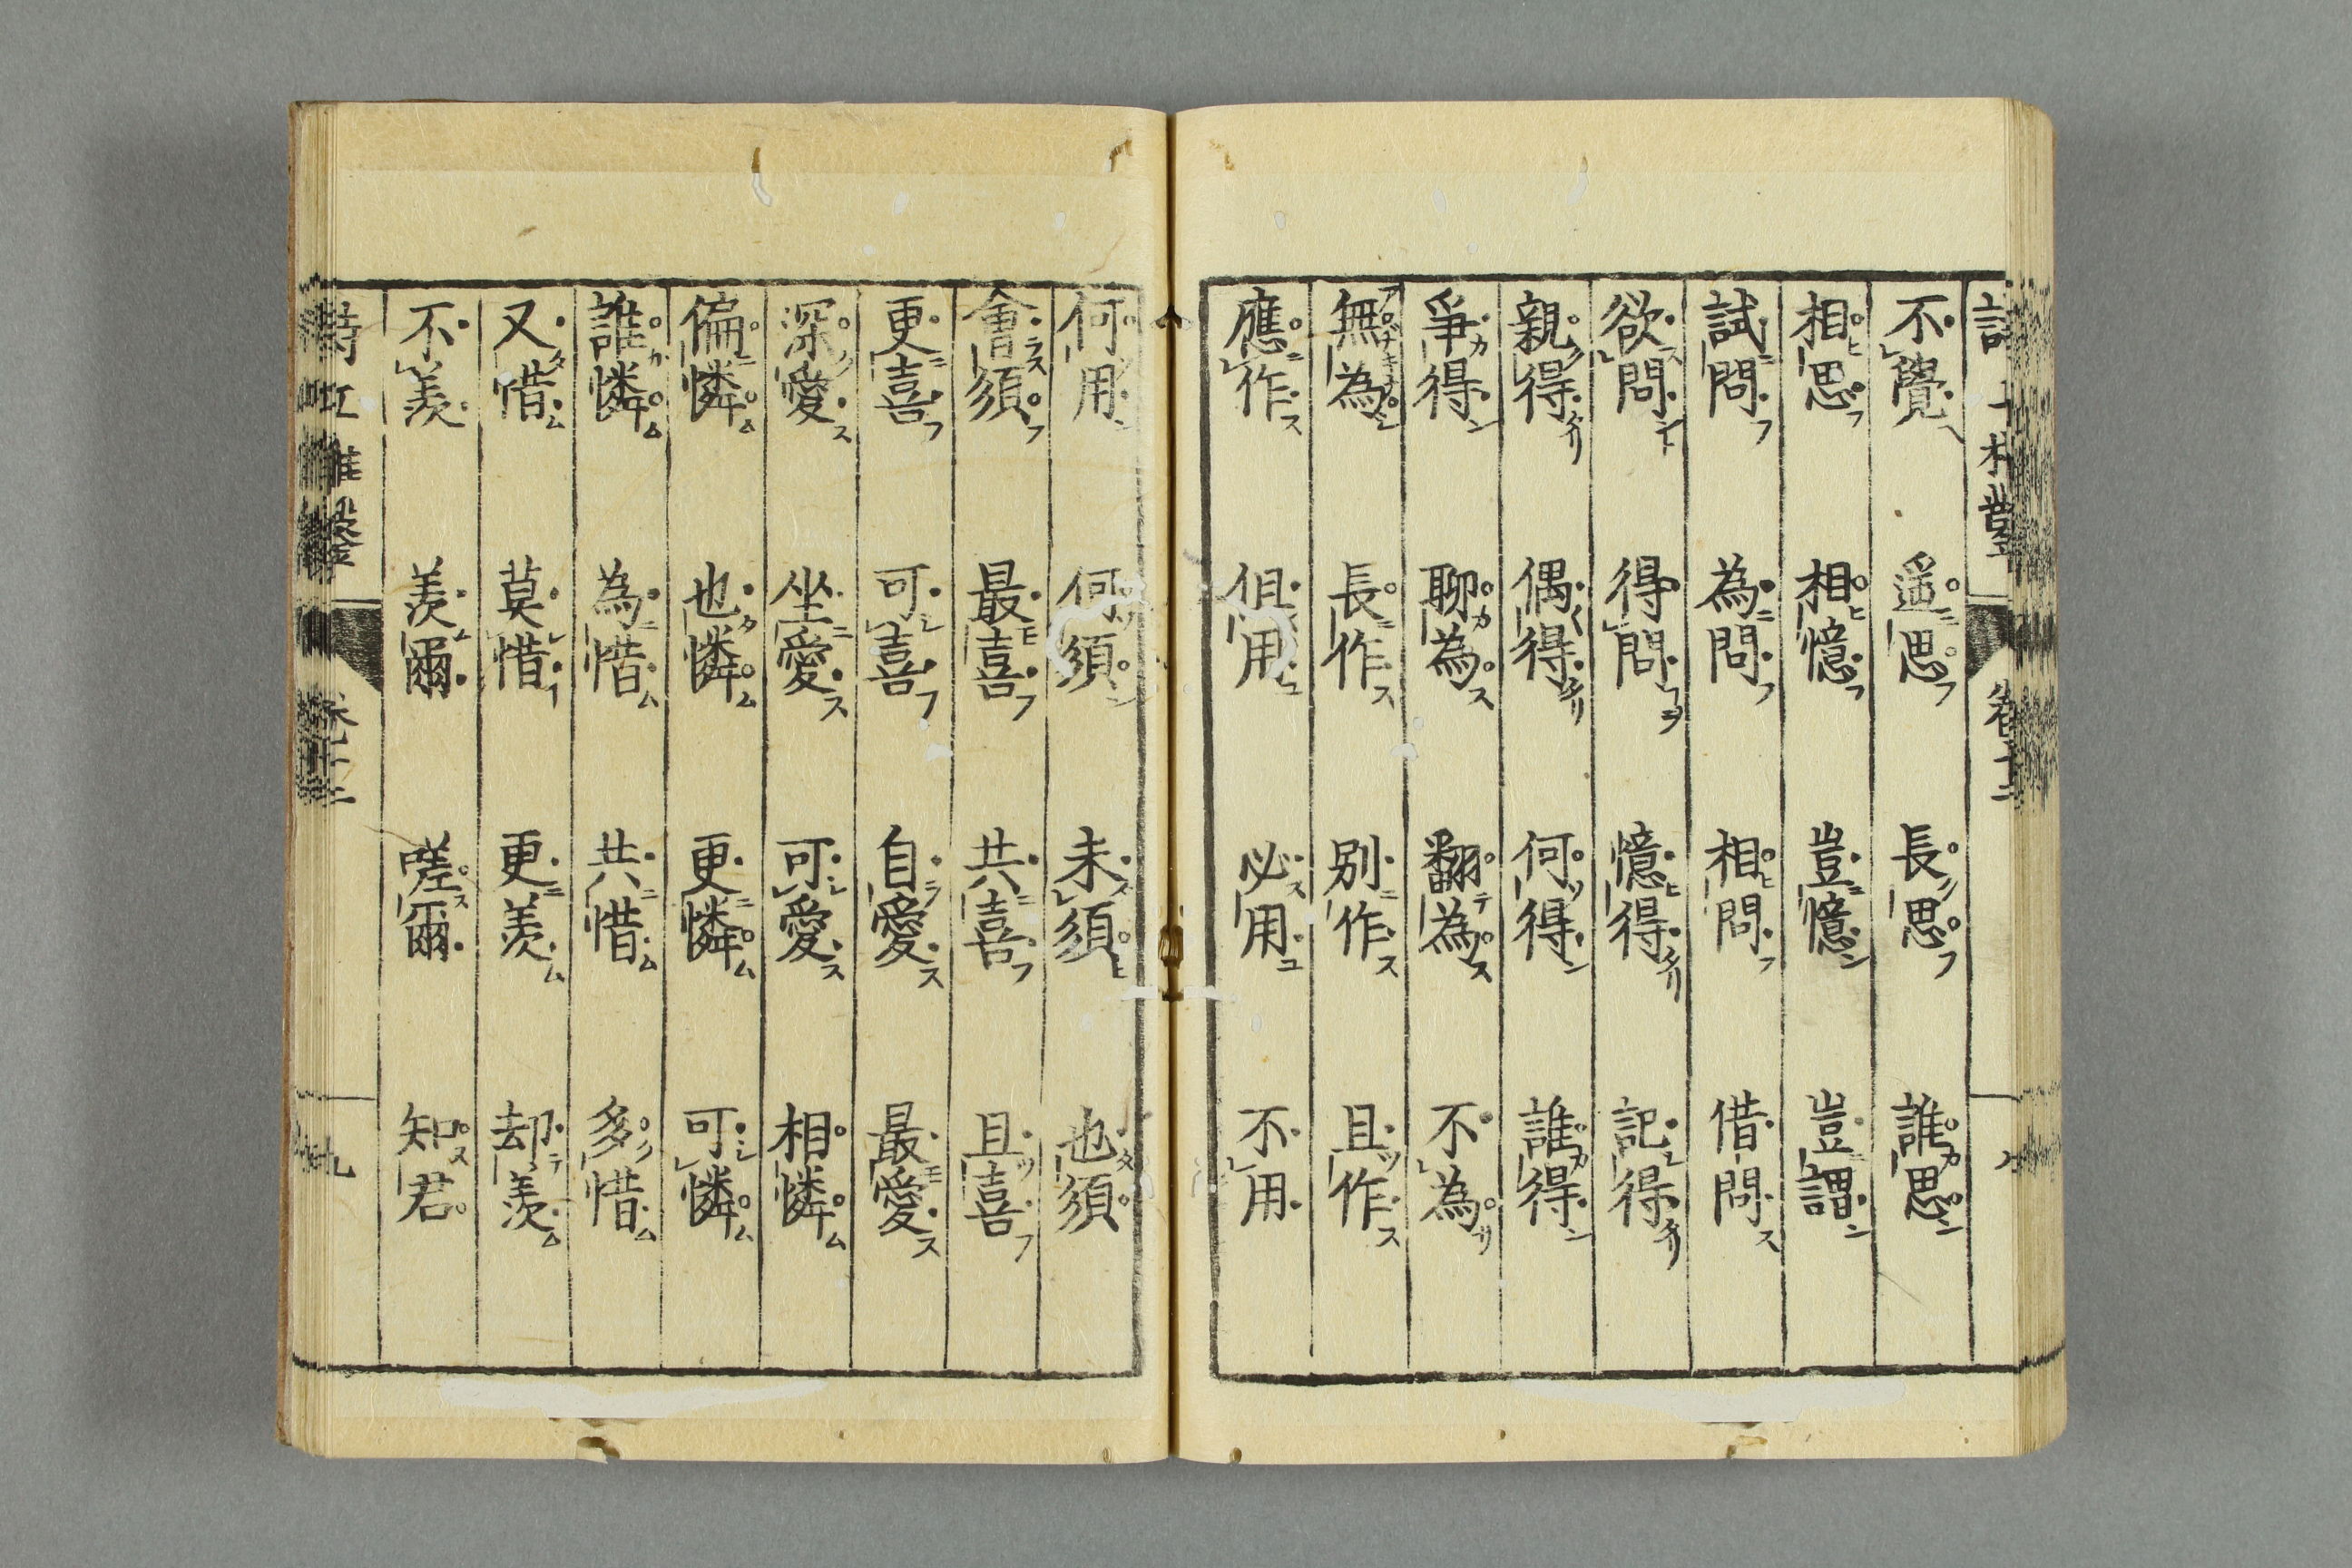 不覺 遥思 長思 誰思
相思 相憶 豈憶 豈謂
試問 為問 相問 借問
欲問 得問 憶得 記得
親得 偶得 何得 誰得
爭得 聊為 翻為 不為
無為 長作 別作 且作
應作 但用 必用 不用
何用 何須 未須 也須
會須 最喜 共喜 且喜
更喜 可喜 自愛 最愛
深愛 坐愛 可愛 相憐
偏憐 也憐 更憐 可憐
誰憐 為惜 共惜 多惜
又惜 莫惜 更羨 却羨
不羨 羨爾 嗟爾 知君
卷十二 九